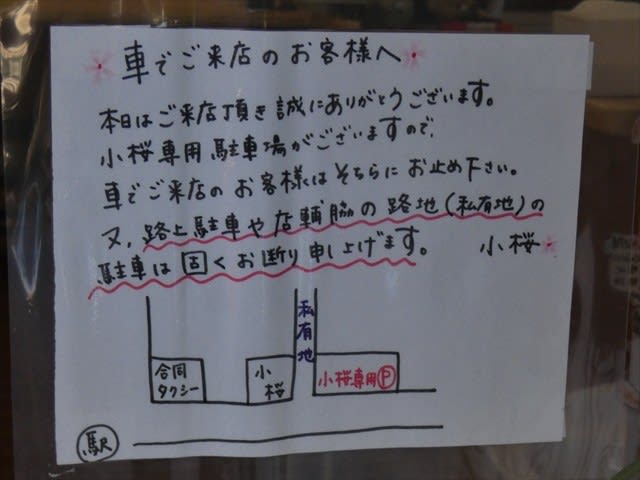 車でご来店のお客様へ
本日はご来店頂き誠にありがとうございます。
小桜専用駐車場がございますので、
車でご来店のお客様はそちらにお止め下さい。
又、路上駐車や店舗脇の路地(私有地)の
駐車は固くお断り申し上げます。 小桜
私有地
合同
タクシー
小桜
小桜専用P
駅